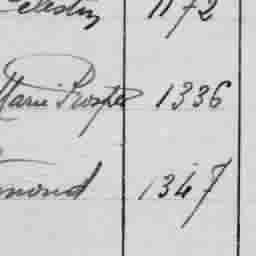 1172
Marie Prosper 1336
mond 1347